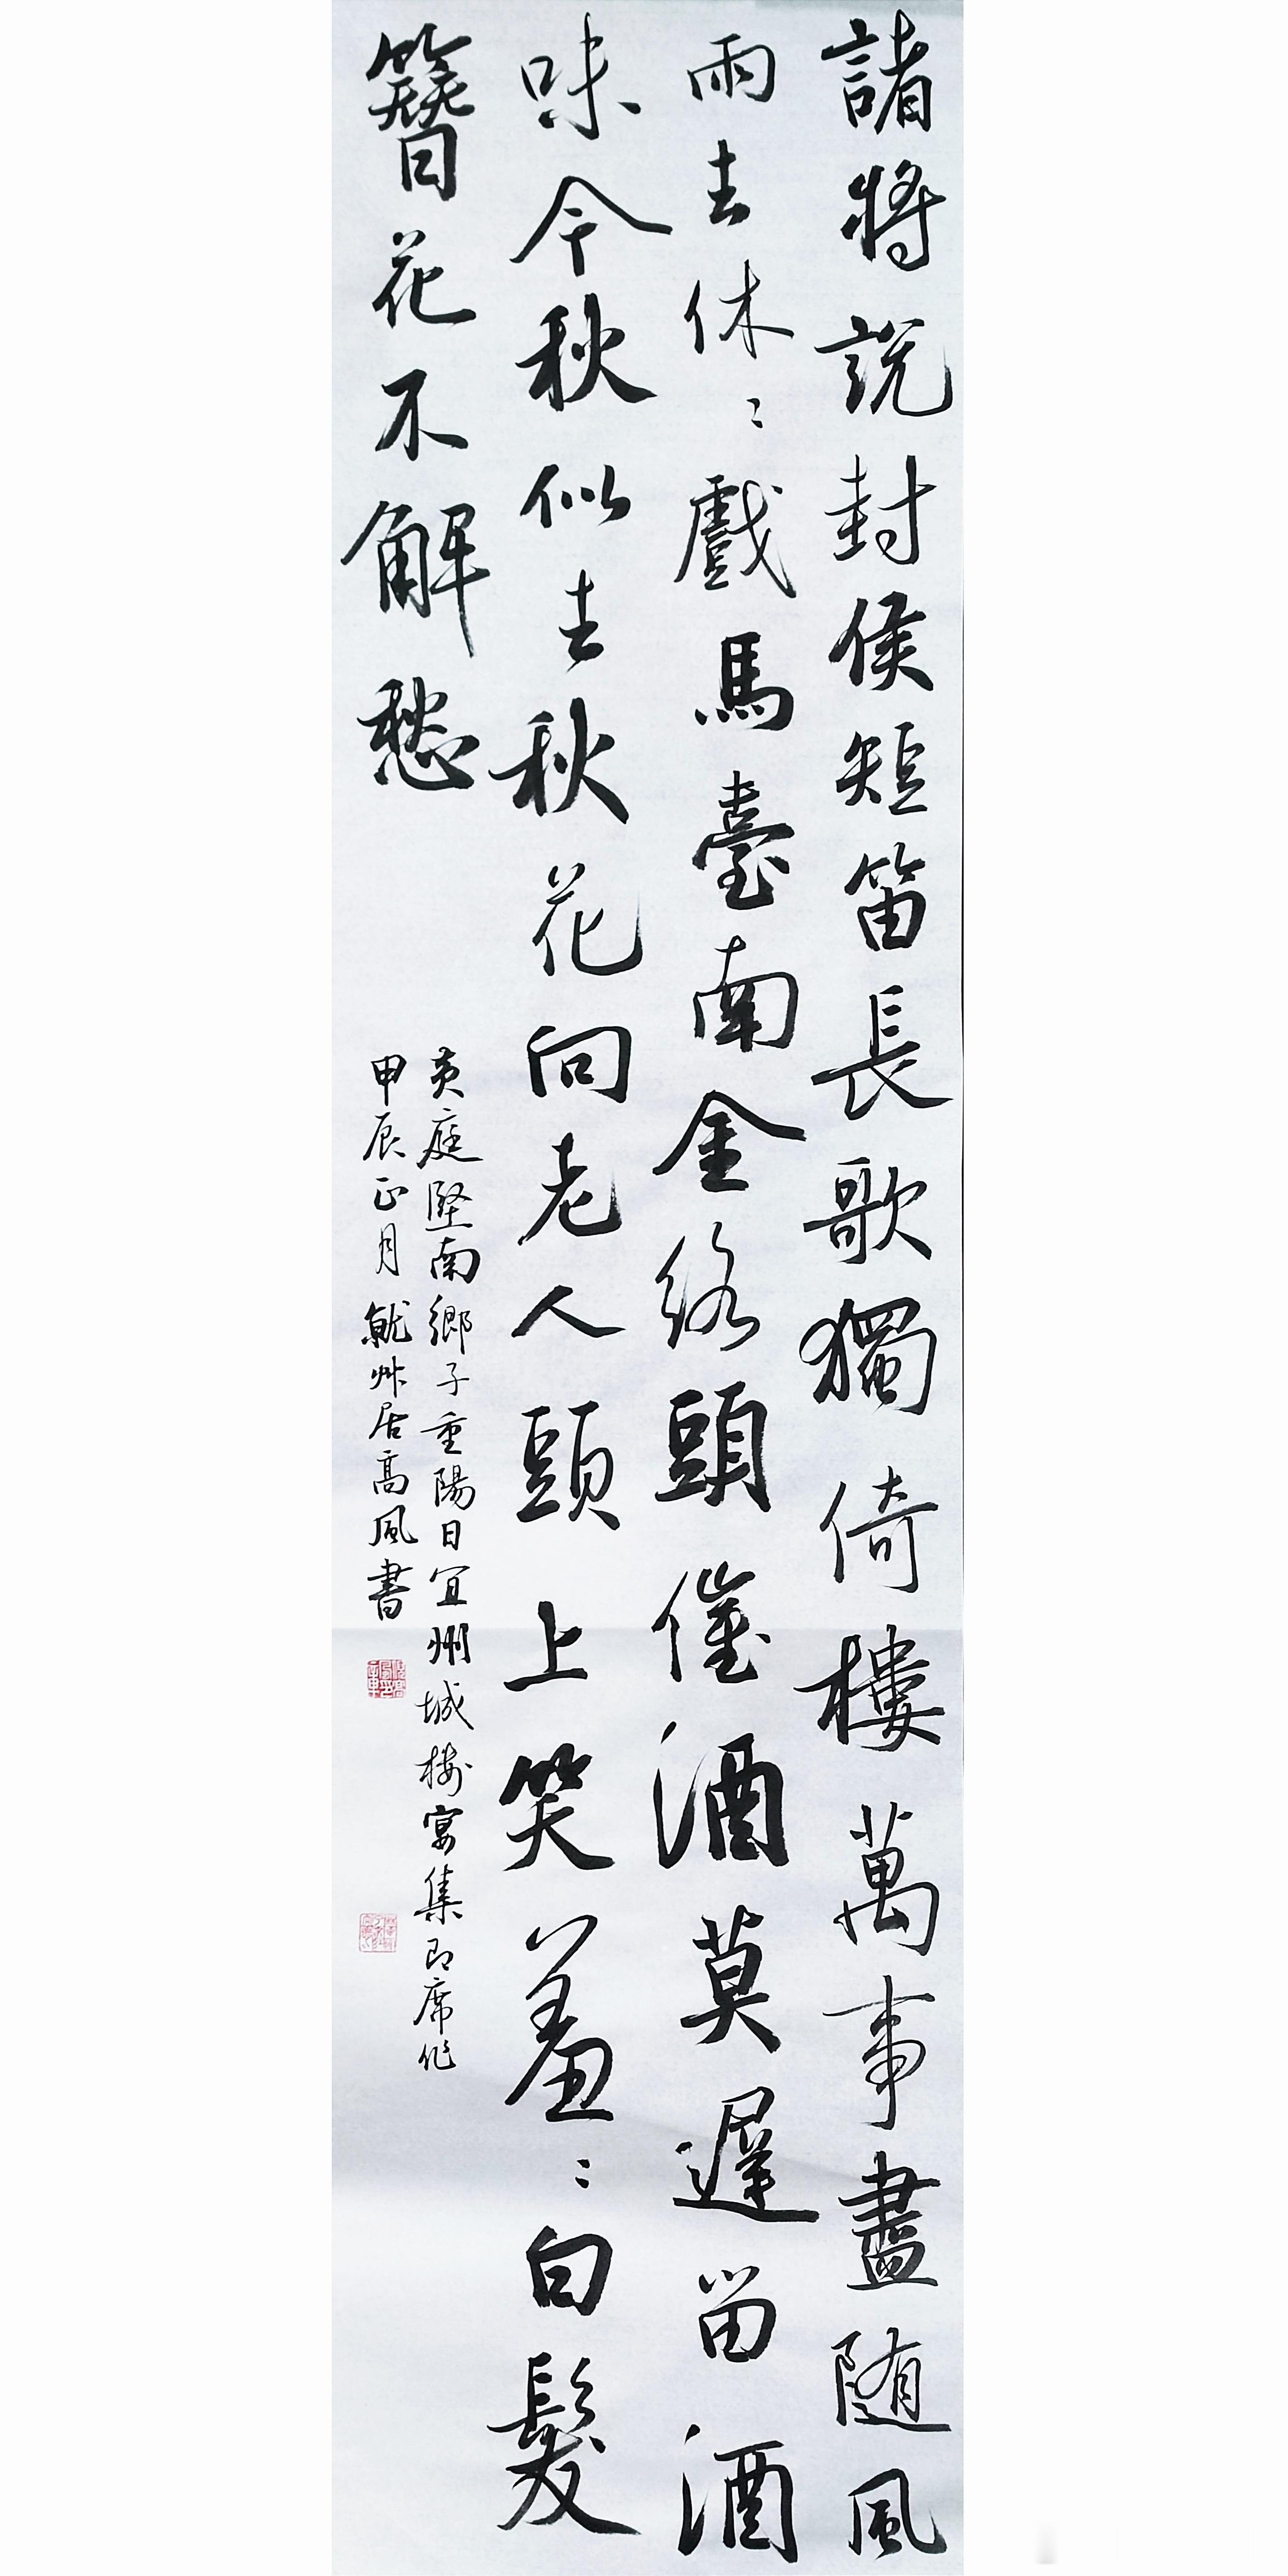 諸將説封侯短笛長歌獨倚樓萬事盡随風
雨去休〻戲馬臺南金络頭催酒莫遲留酒
味今秋似去秋花向老人頭上笑羞〻白髮
簪花不解愁
黄庭堅南鄉子重陽日宜州城楼宴集即席作
甲辰正月就艸居高風書